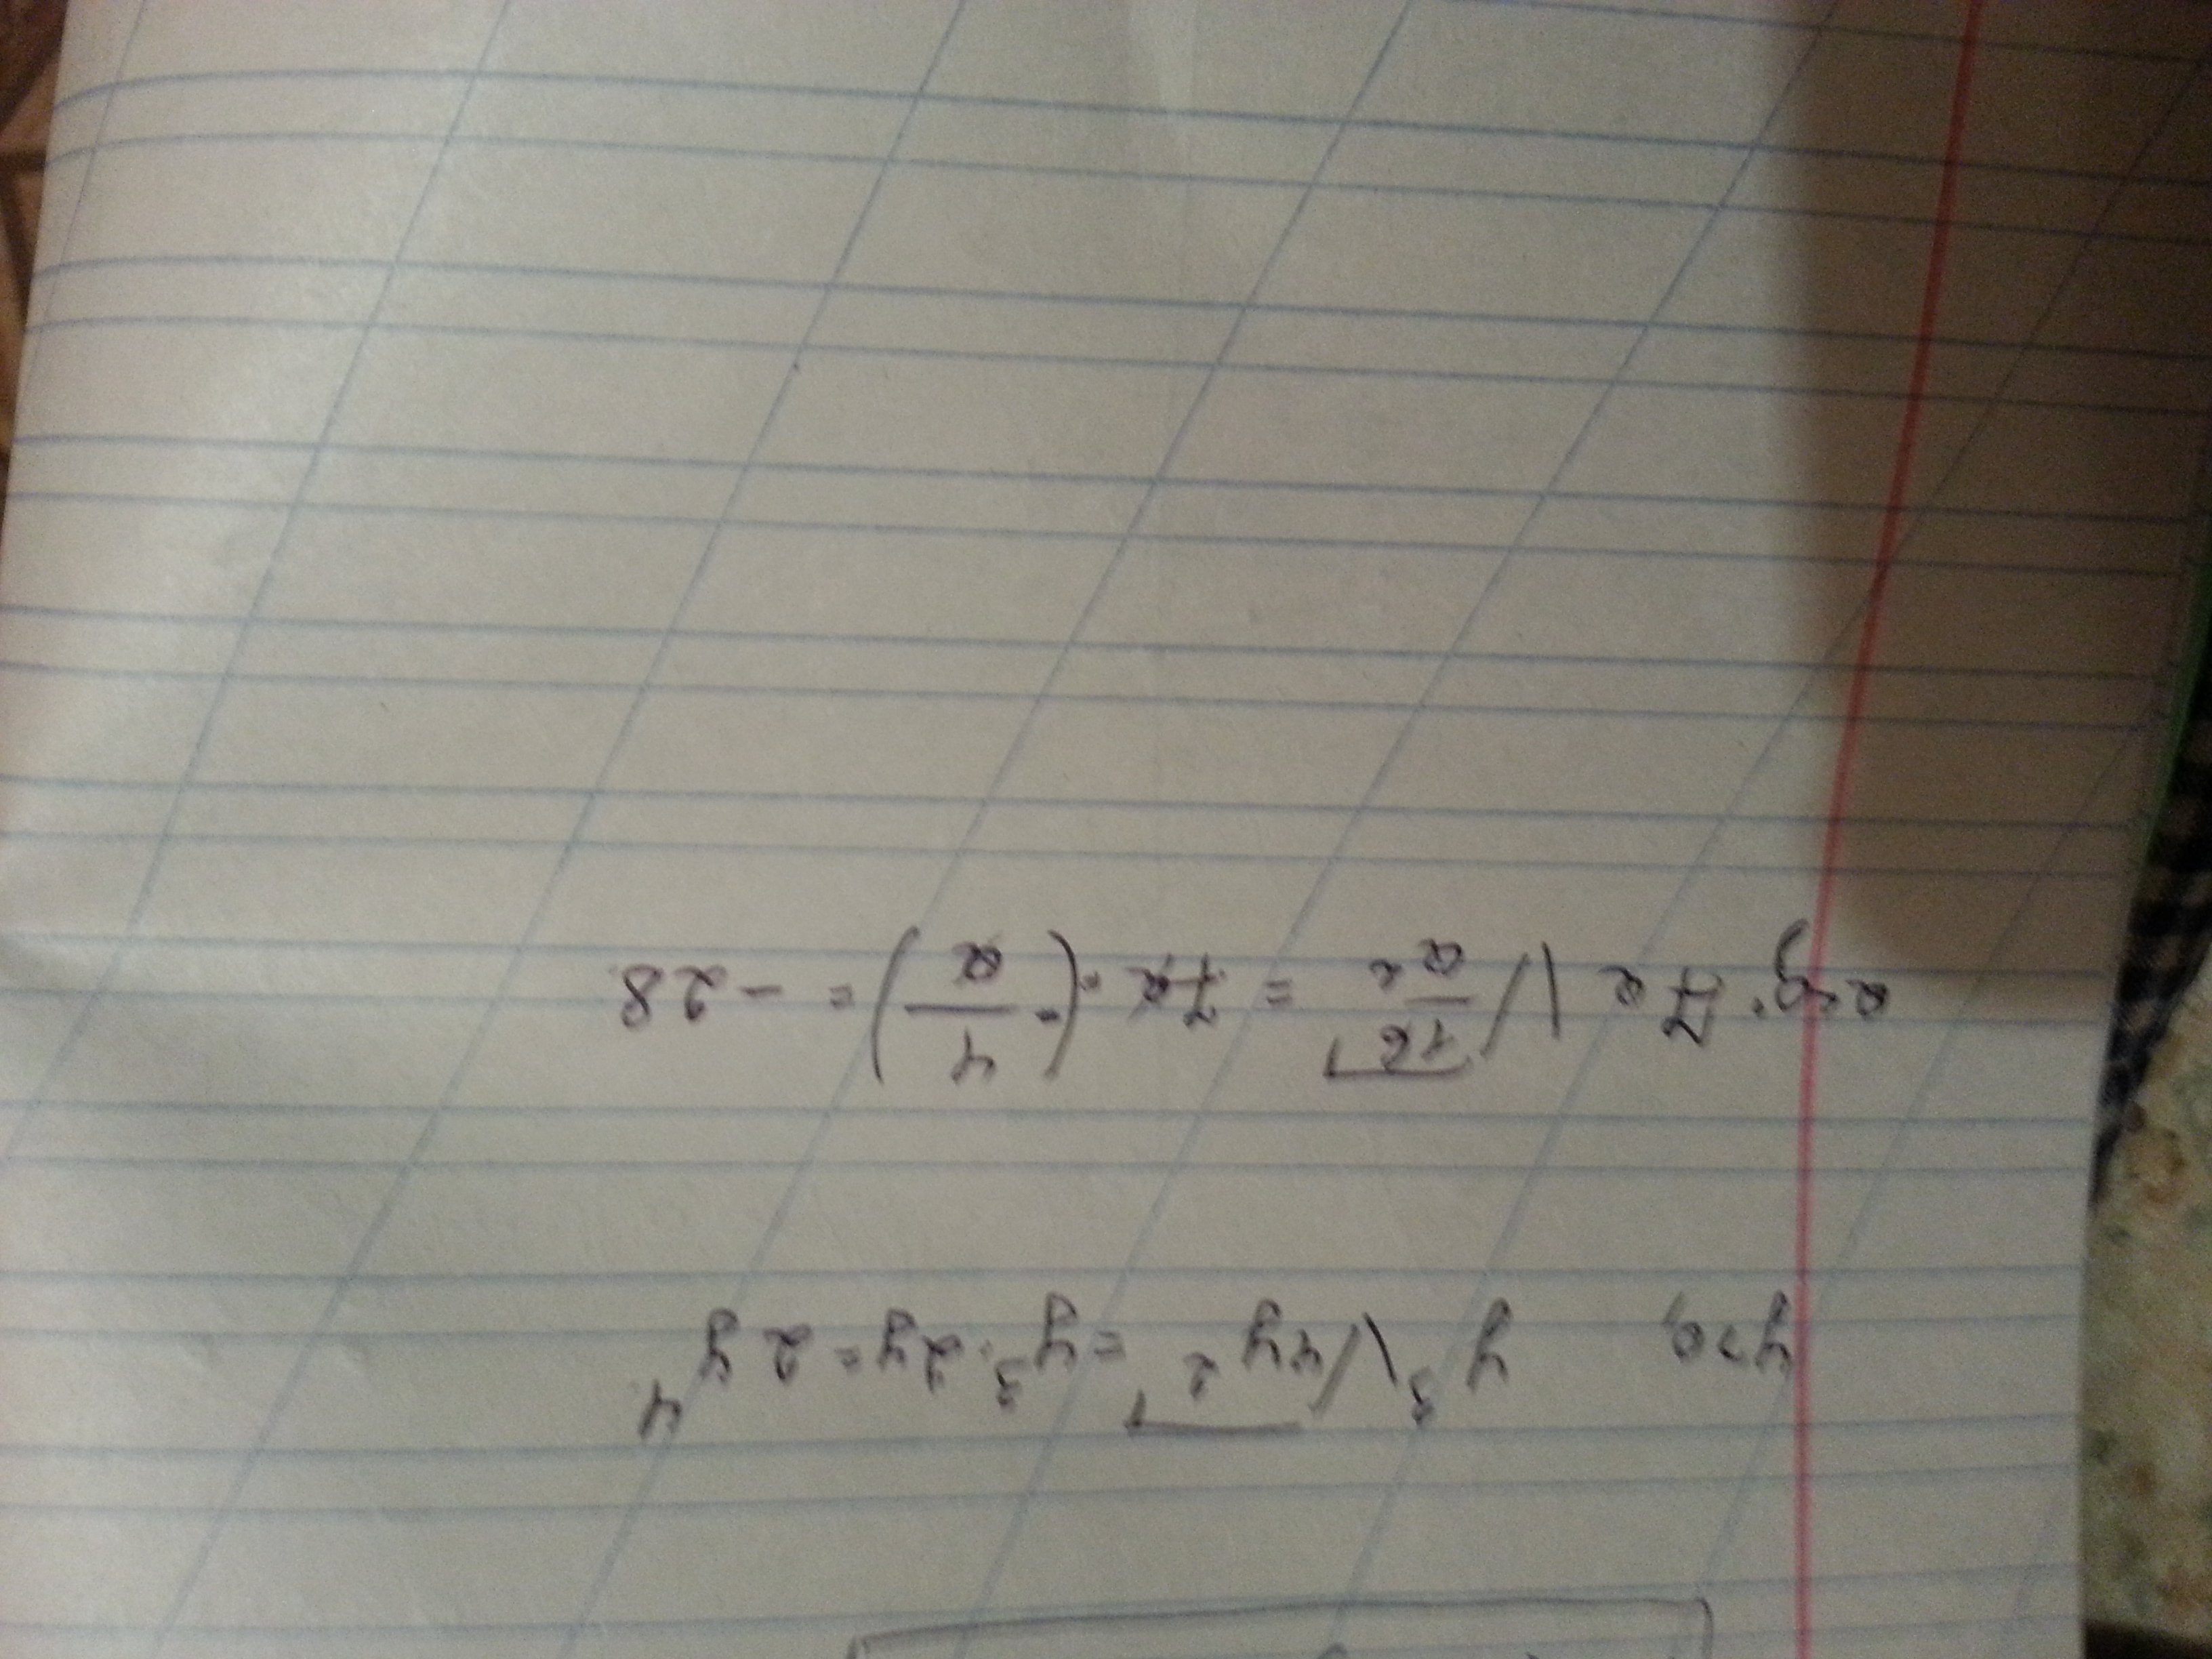 y>0, y³√4y² = y³·2y = 2y⁴
a<0; 7a√16/a² = 7a·(-4/a) = -28